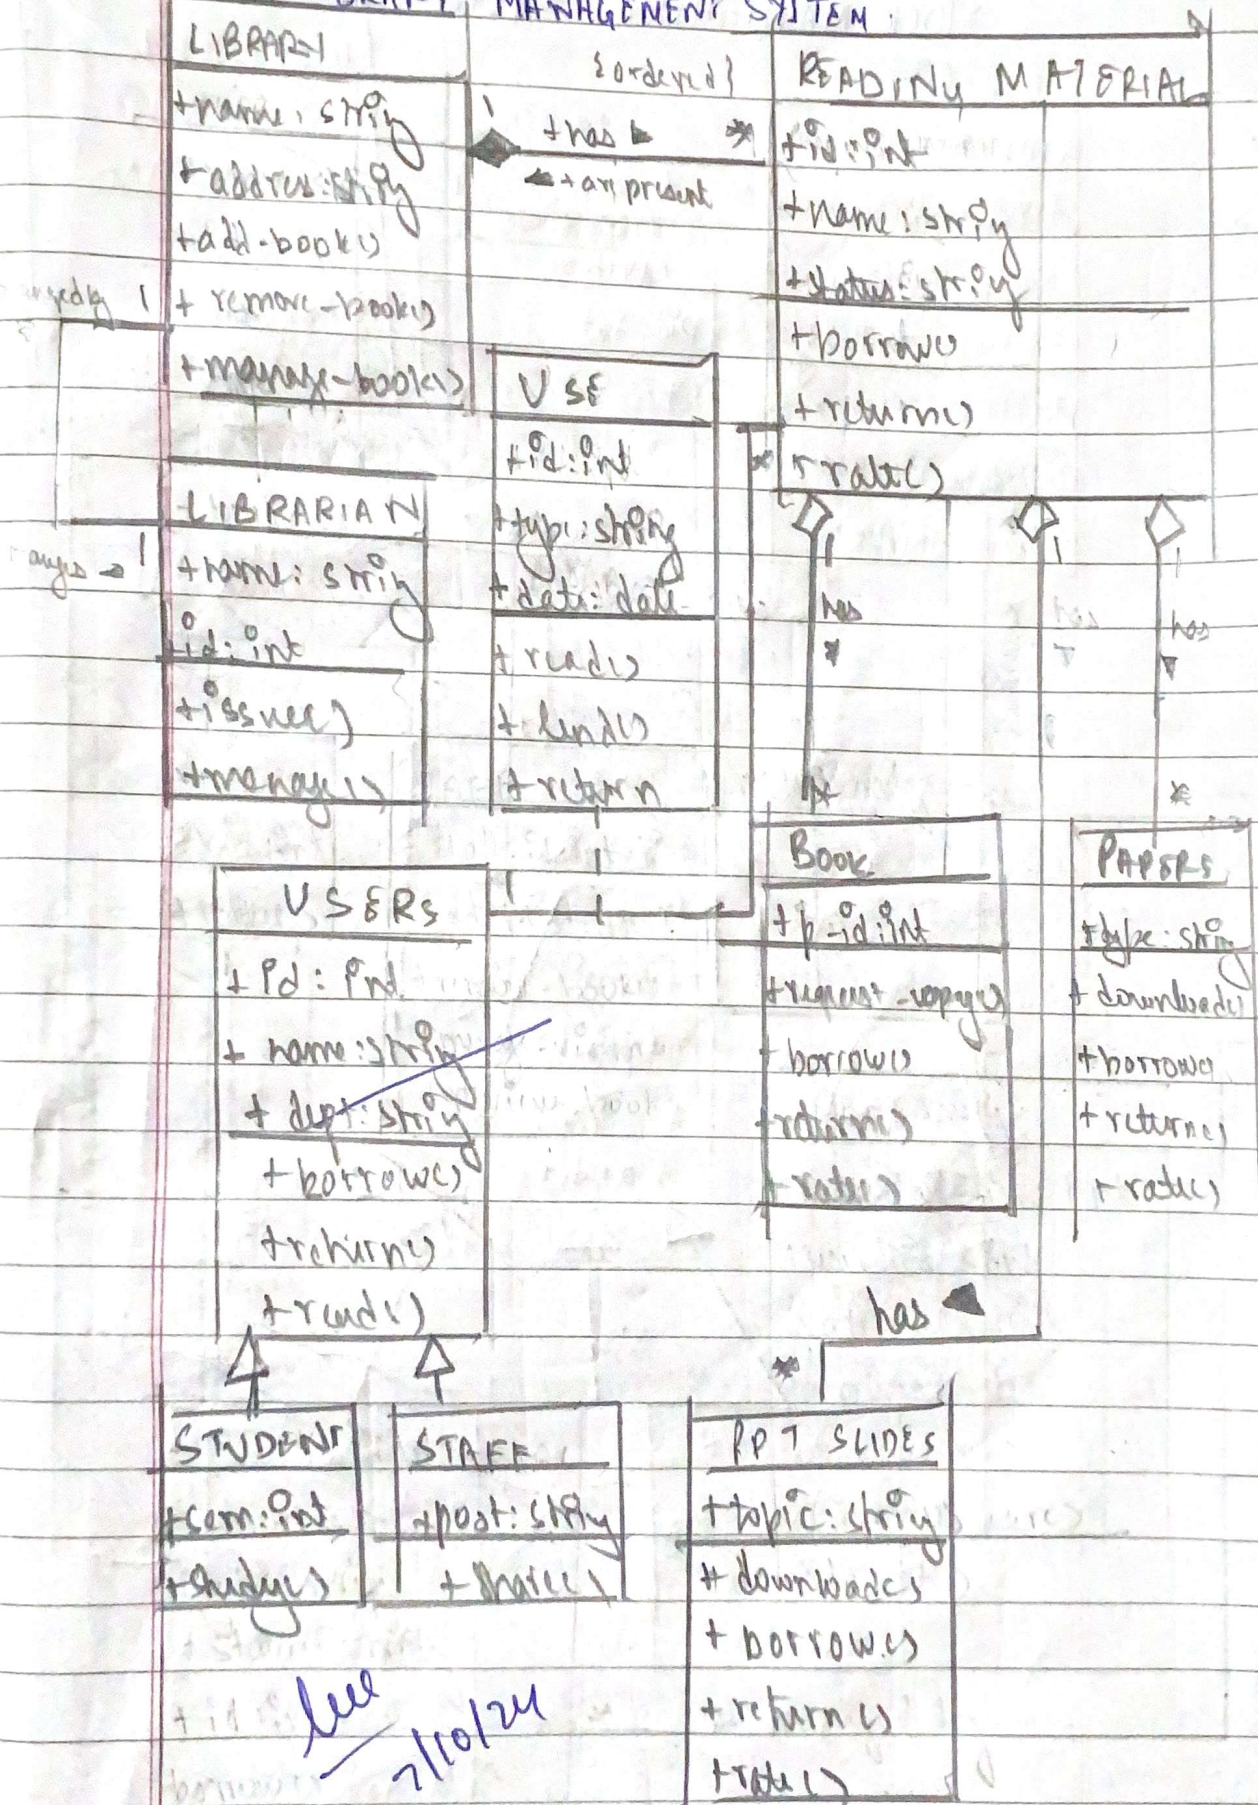 MANAGEMENT SYSTEM.
LIBRARY
+name: string
+address: string
+add-book()
+ remove-book()
+manage-book()
{ordered}
1
+has
*
+are present
READING MATERIAL
+id: int
+name: string
+status: string
+borrow()
+return()
+rate()
1
LIBRARIAN
1
+name: string
id: int
+issue()
+manage()
USE
+id: int
+type: string
+date: date
+ read()
+ lend()
+ return
*
1
has
*
*
1
1
has
*
USERS
1
+ id: int
+ name: string
+ dept: string
+ borrow()
+return()
+read()
BOOK
+b-id: int
+request-copy()
borrow()
+return()
+rate()
PAPERS
+type: string
+ download()
+borrow()
+return()
+ rate()
has
*
STUDENT
+sem: int
+study()
STAFF
+post: string
+ share()
PPT SLIDES
+topic: string
+ download()
+ borrow()
+ return()
+rate()
7/10/24